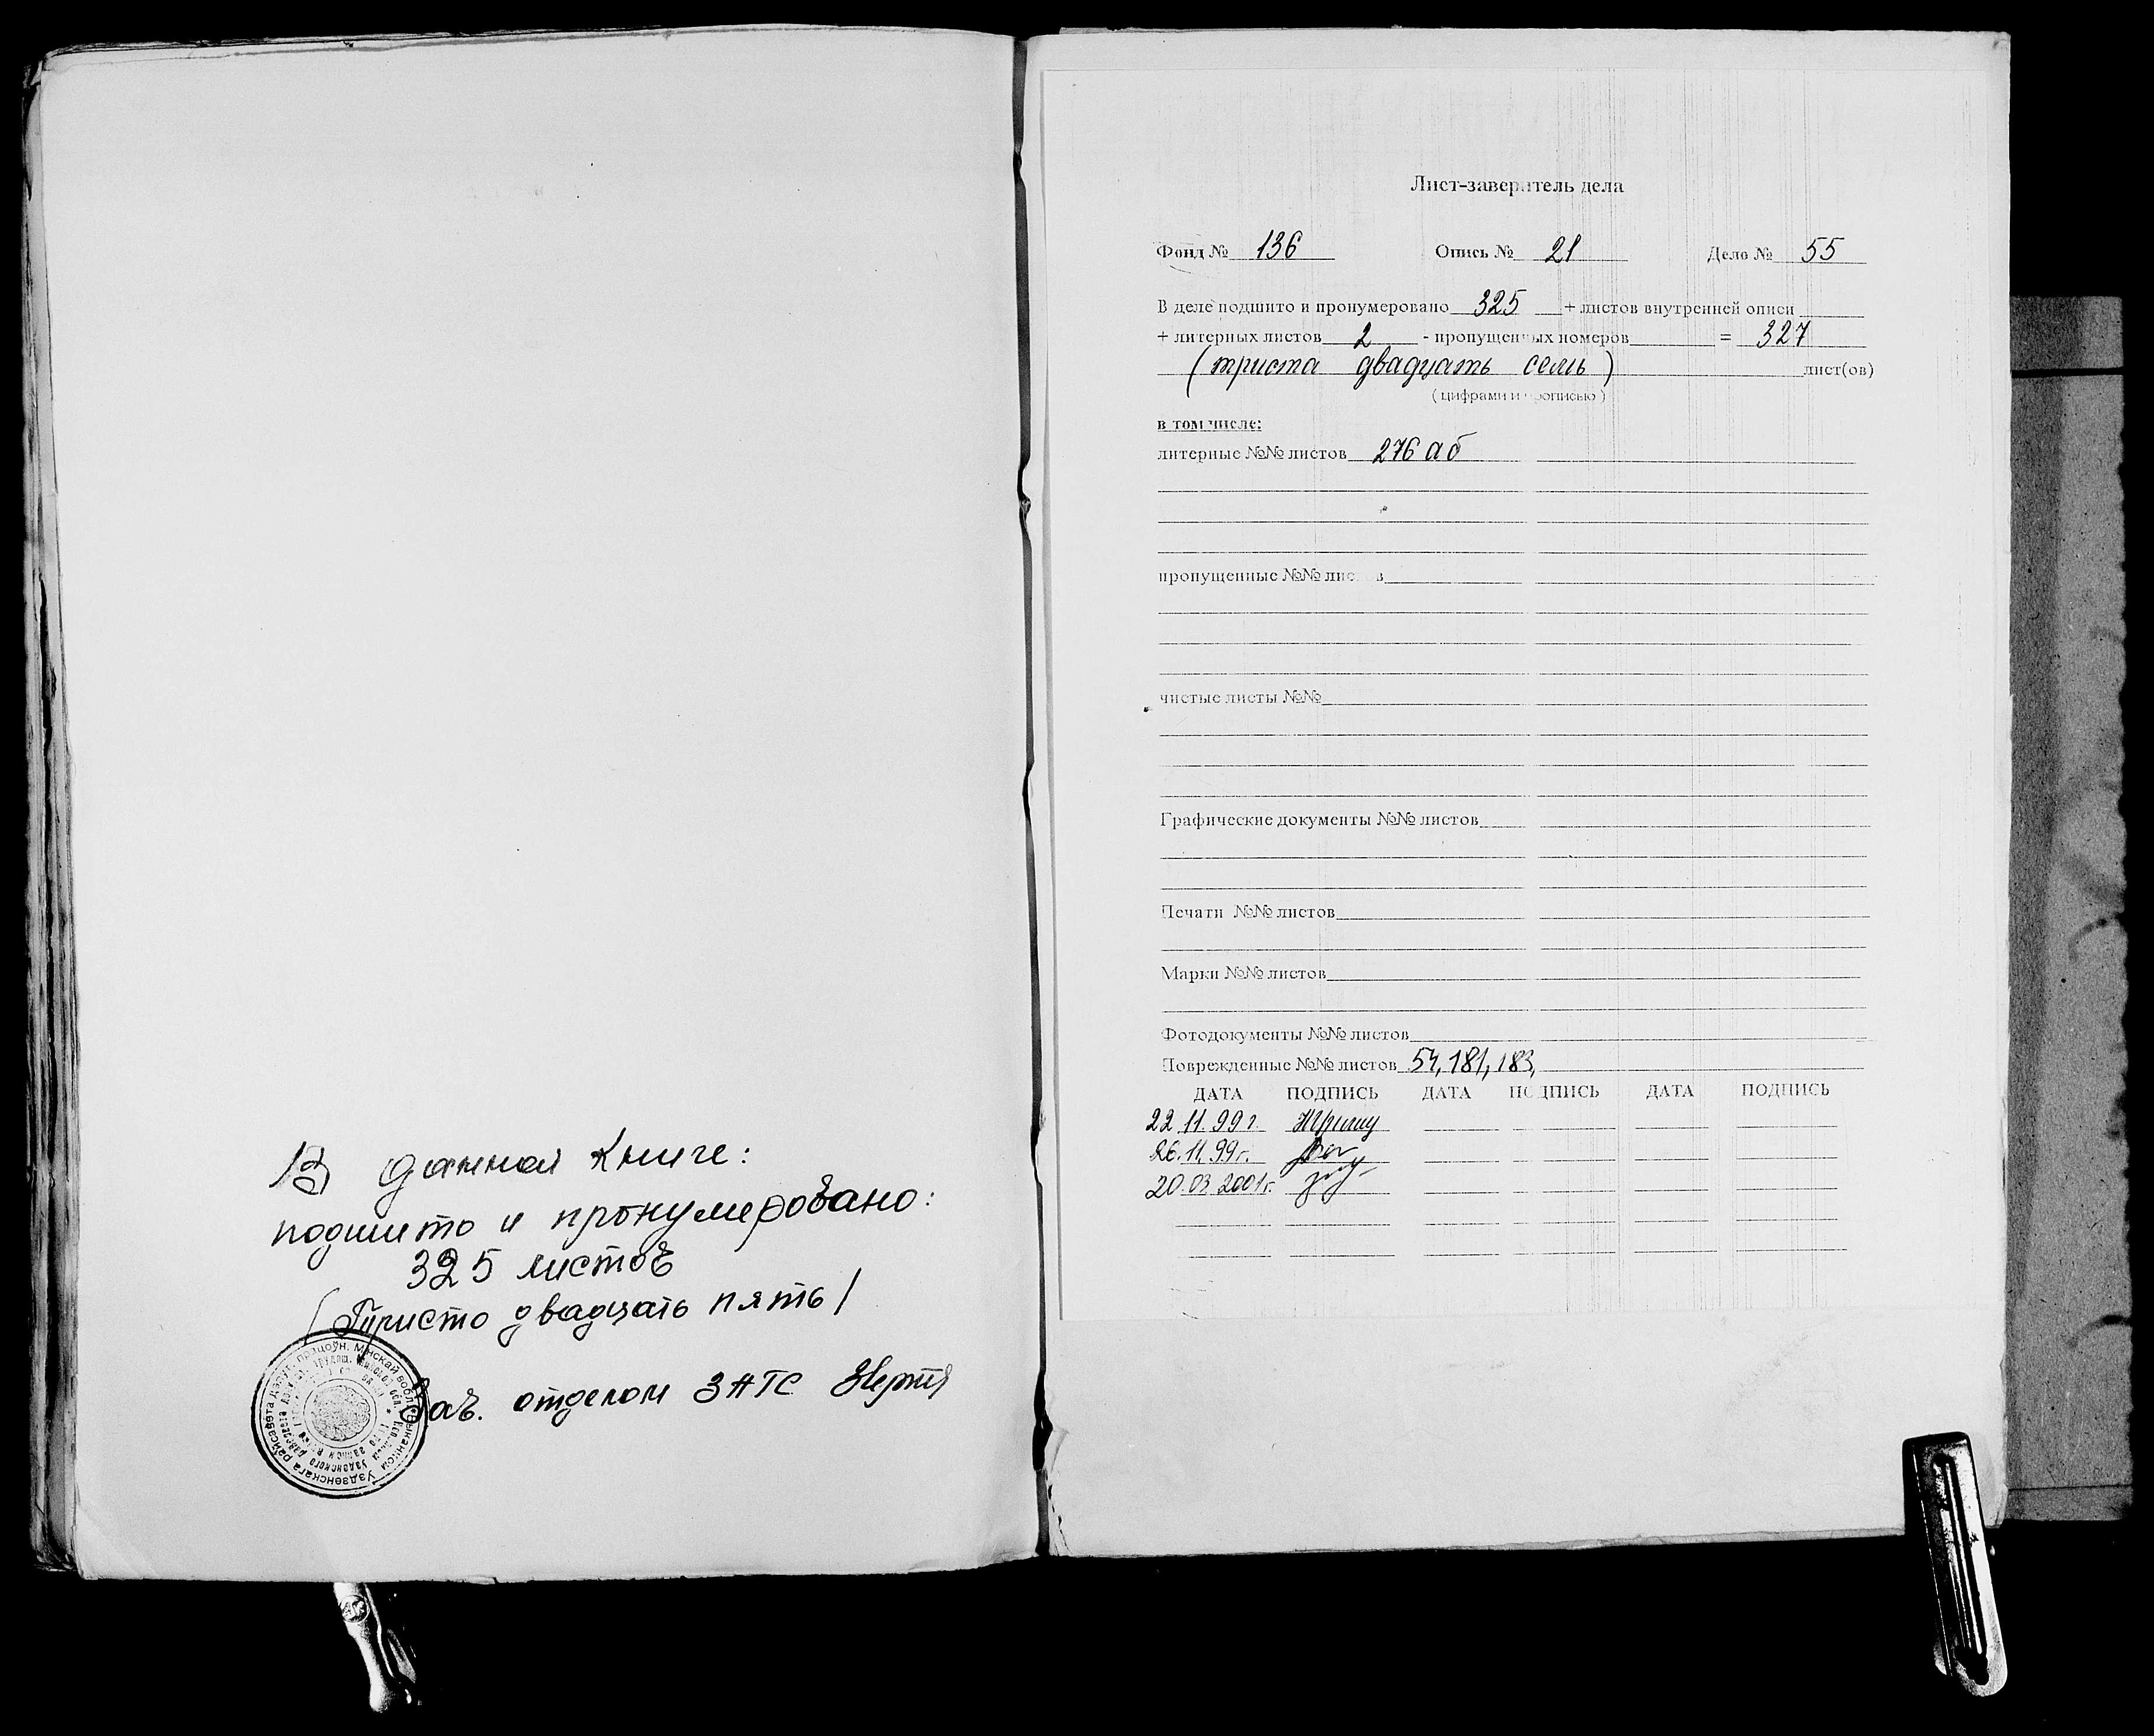 В данной книге:
подшито и пронумеровано:
325 листов
(Тристо двадцать пять)
Зав. отделом ЗАГС
Лист-заверитель дела
Фонд № 136 Опись № 21 Дело № 55
В деле подшито и пронумеровано 325 + листов внутренней описи
+ литерных листов 2 - пропущенных номеров = 327
(триста двадцать семь) лист(ов)
(цифрами и прописью)
в том числе:
литерные №№ листов 276 а б
пропущенные №№ листов
чистые листы №№
Графические документы №№ листов
Печати №№ листов
Марки №№ листов
Фотодокументы №№ листов
Поврежденные №№ листов 54, 181, 183,
ДАТА ПОДПИСЬ ДАТА ПОДПИСЬ ДАТА ПОДПИСЬ
22.11.99 г.
26.11.99 г.
20.03.2001 г.